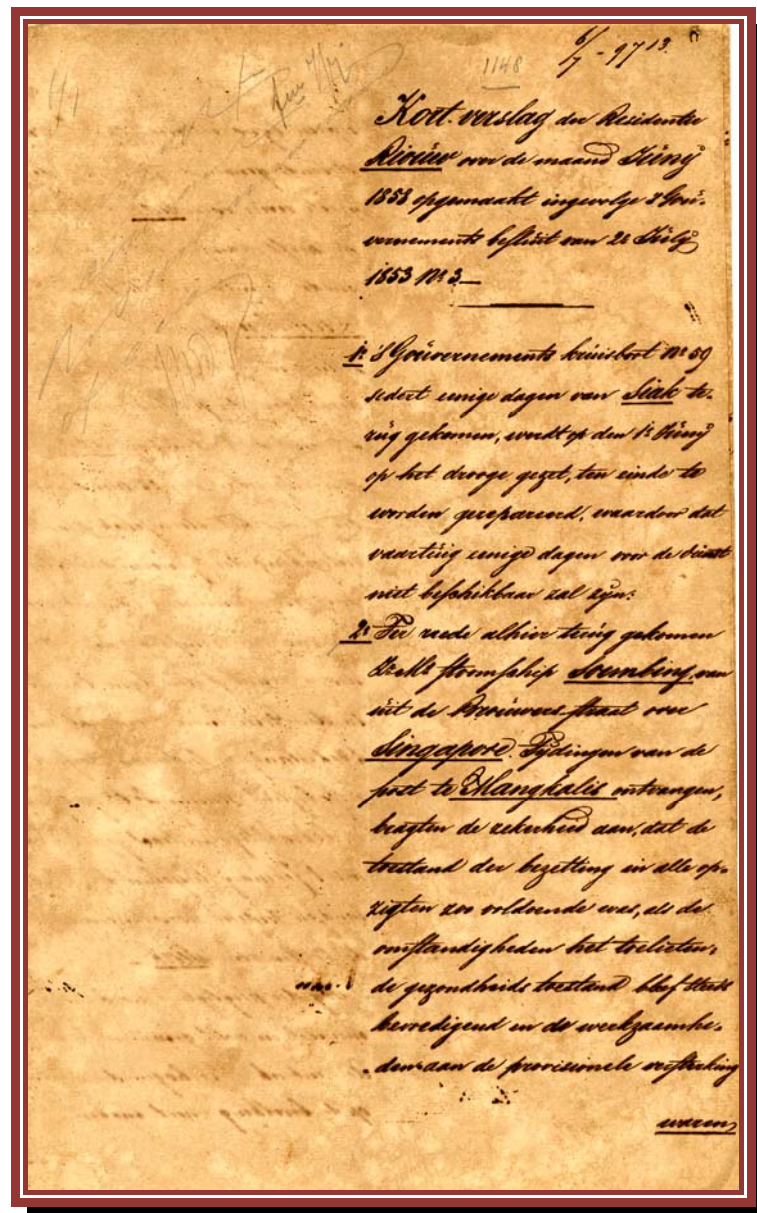 6/7 - 97 13.
1148
Kort verslag der Residentie
Riouw over de maand Junij
1858 opgemaakt ingevolge 's Gou-
vernements besluit van 2e Julij
1853 No 3.
1e 's Gouvernements kruisboot No 59
sedert eenige dagen van Siak te-
rug gekomen, wordt op den 1e Junij
op het drooge gezet, ten einde te
worden gerepareerd, waardoor dat
vaartuig eenige dagen voor de dienst
niet beschikbaar zal zijn.
2e Ter reede alhier terug gekomen
Zr Ms stoomschip Soembing, van
uit de Brouwers straat over
Singapore. Tijdingen van de
post te Mangkalis ontvangen,
bragten de zekerheid aan, dat de
toestand der bezetting in alle op-
zigten zoo voldoende was, als de
omstandigheden het toelieten;
de gezondheids toestand bleef steeds
bevredigend en de werkzaamhe-
den aan de provisionele versterking
waren